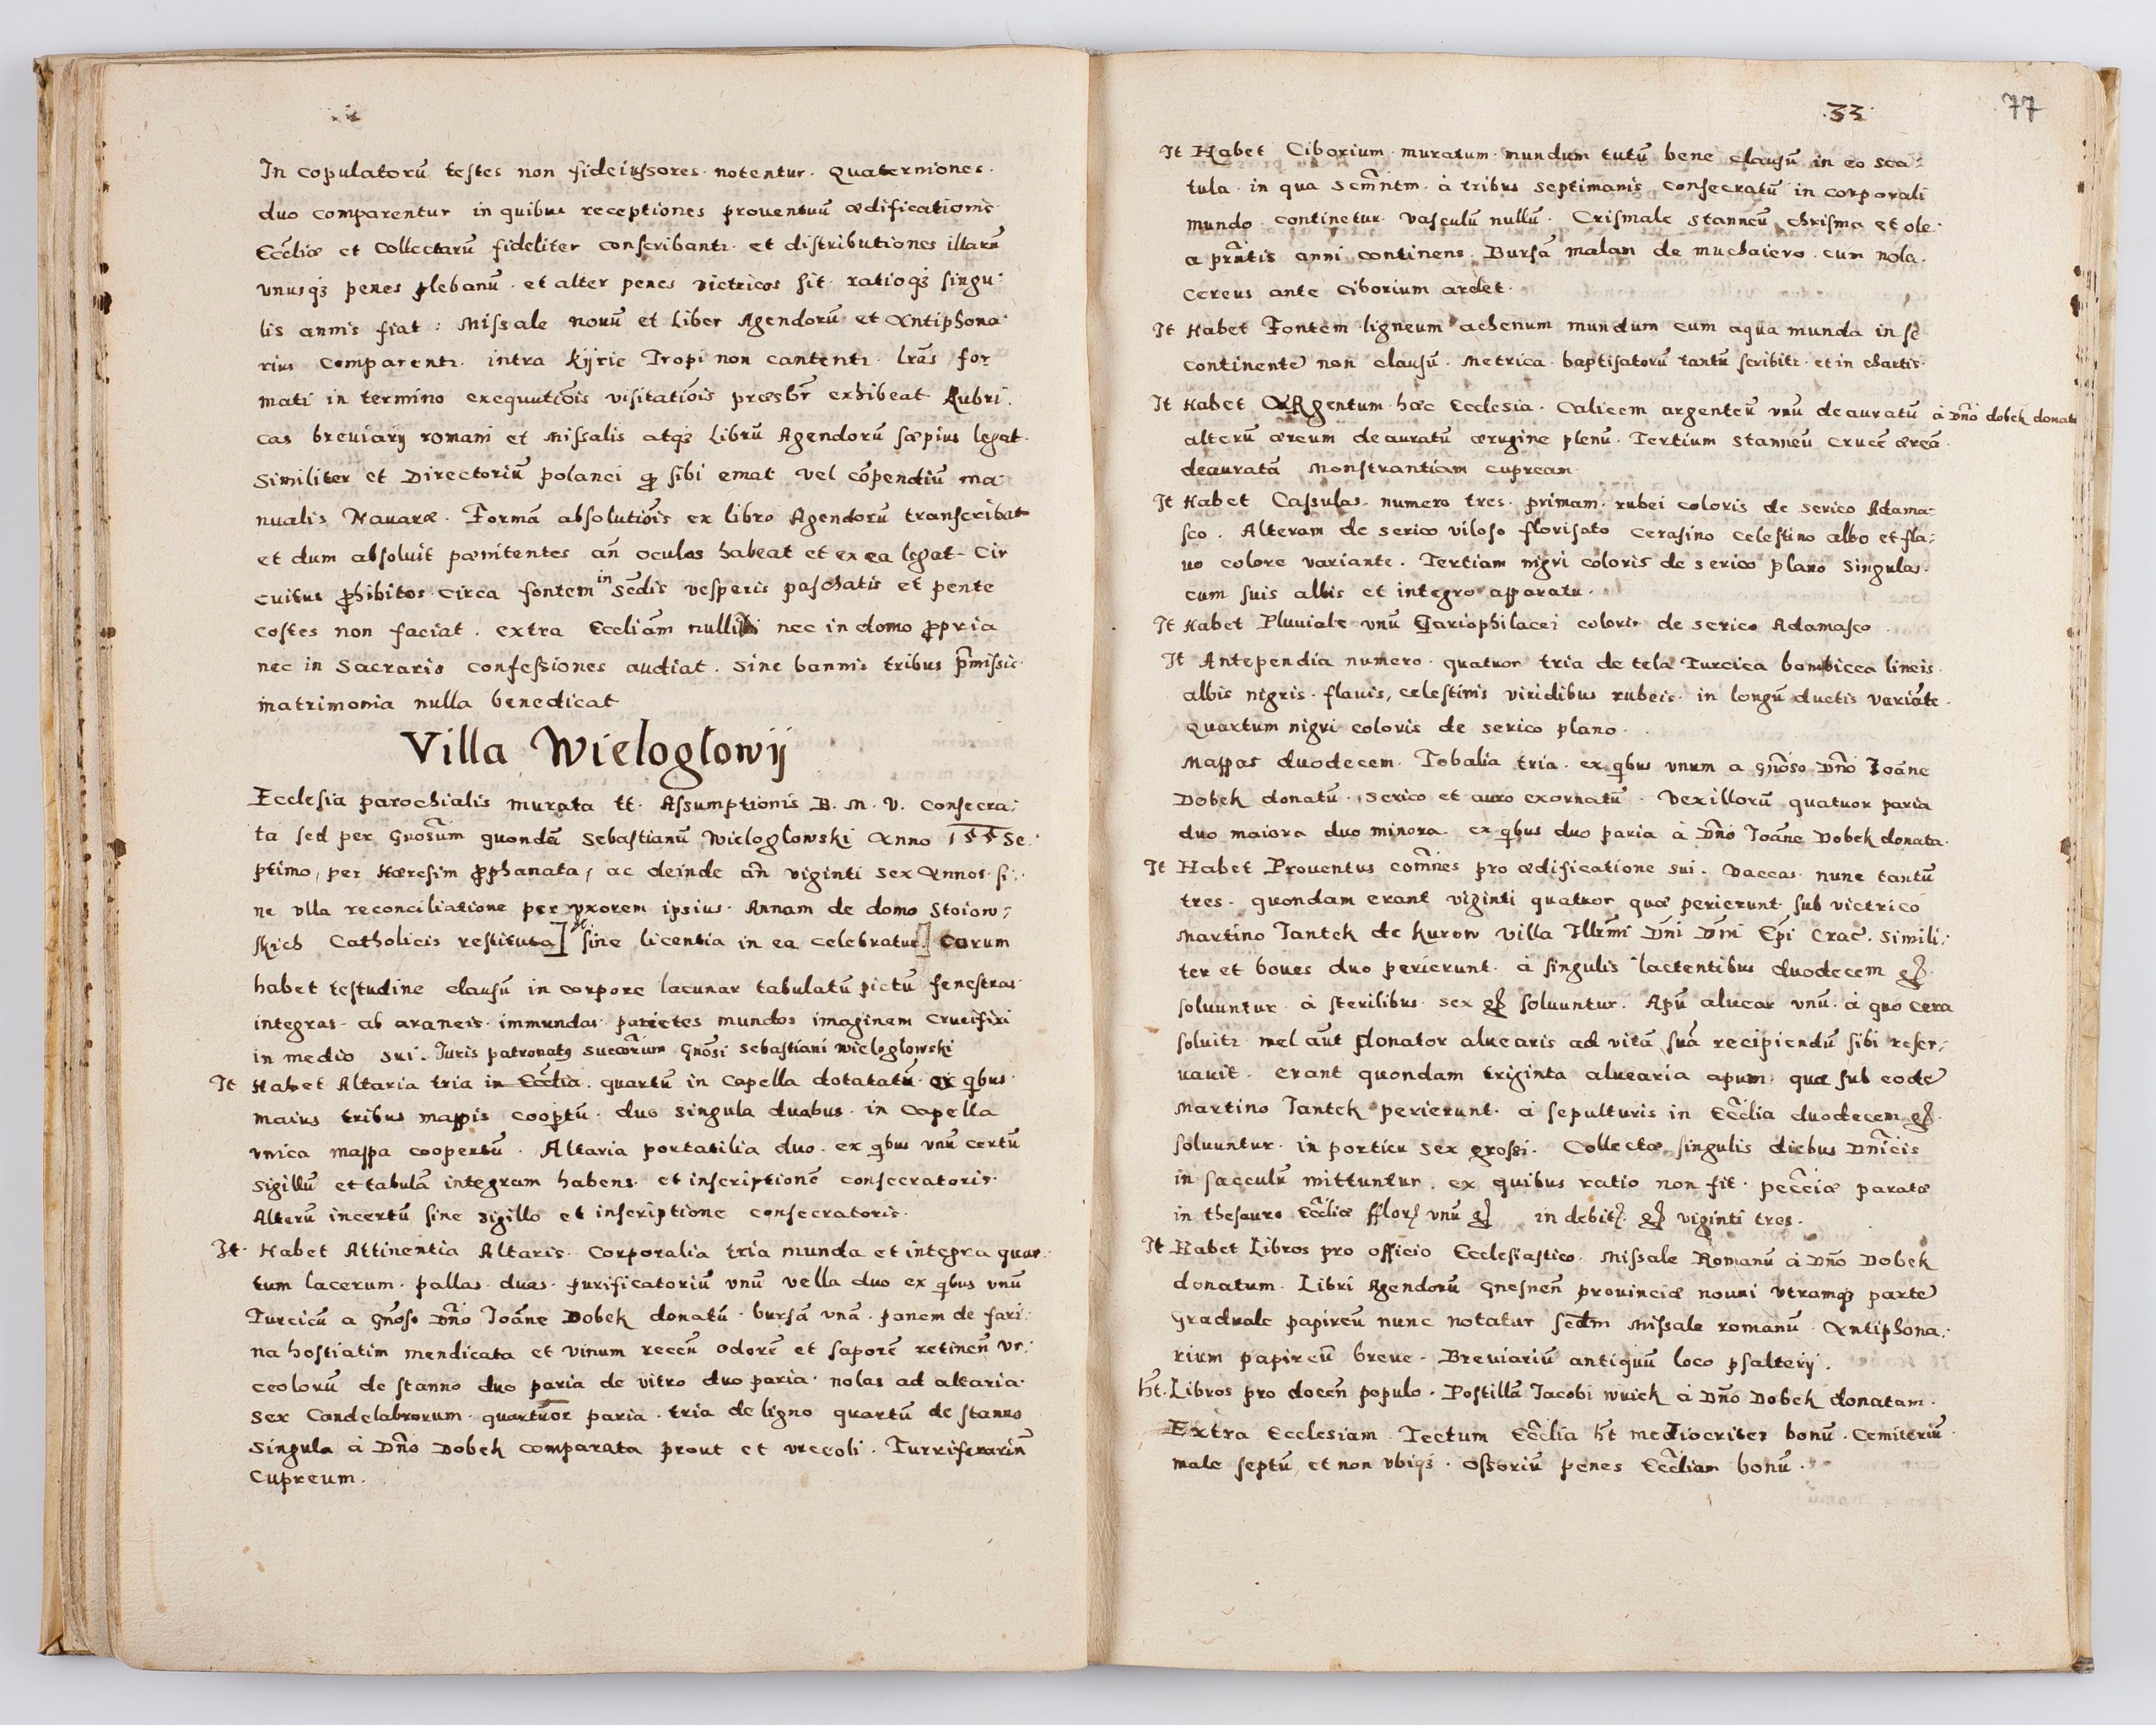 In copulatorũ testes non fideiussores notentur. Quaterniones.
duo comparentur in quibus receptiones prouentuũ ædificationis
Ecc̃liæ et Collectarũ fideliter conscribantr. et distributiones illarũ
vnusqʒ penes plebanũ. et alter penes victricos sit. ratioqʒ singu:
lis annis fiat: Missale nouũ et Liber Agendorũ et Antiphona:
rius comparentr. intra Kÿrie Tropi non cantentr. lrãs for
mati in termino exequutiõis visitatiõis præsbr̃ exhibeat Rubri.
cas breuiarÿ romani et Missalis atqʒ Librũ Agendorũ sæpius legat.
Similiter et Directoriũ polanci ꝙ sibi emat vel cõpendiũ ma
nualis Nauaræ. Formã absolutiõis ex libro Agendorũ transcribat
et dum absoluit pænitentes añ oculos habeat et ex ea legat. Cir
cuitus ꝓhibitos circa fontem in Sẽdis vesperis paschatis et pente
costes non faciat. extra Eccliãm nec in domo ꝓpria
nec in Sacrario confessiones audiat. Sine bannis tribus p̃missis
matrimonia nulla benedicat
Villa Wielogłowÿ
Ecclesia parochialis murata tt. Assumptionis B. M. V. Consecra:
ta sed per Gnosũm quondã Sebastianũ Wieloglowski Anno 155 Se:
ptimo, per Hæresim ꝓphanata, ac deinde añ viginti sex Annos si:
ne vlla reconciliatione per vxorem ipsius. Annam de domo Stoiow:
skich Catholicis restituta] sine licentia in ea celebratur.] Corum
habet testudine clausũ in corpore lacunar tabulatũ pictũ fenestras
integras. ab araneis immundas parietes mundos imaginem Crucifixi
in medio sui. Iuris patronatꝰ Gnõsi Sebastiani Wieloglowski
It Habet Altaria tria in Ecc̃lia. quartũ in Capella dotatatũ ex qbus.
maius tribus mappis coop̃tũ. duo singula duabus. in Capella
vnica mappa coopertũ. Altaria portatilia duo. ex qbus vnũ certũ
Sigillũ et tabulã integram habens et inscriptionẽ consecratoris.
Alterũ incertũ sine sigillo et inscriptione consecratoris.
It. Habet Attinentia Altaris. Corporalia tria munda et integra quar:
tum lacerum. pallas duas. purificatoriũ vnũ vella duo ex qbus vnũ
Turcicũ a Gñoso Dño Ioãne Dobek donatũ. bursã vnã. panem de fari:
na hostiatim mendicata et vinum recẽn odorẽ et saporẽ retineñ vr:
ceolorũ de stanno duo paria de vitro duo paria. nolas ad altaria.
Sex Candelabrorum. quartuor paria. tria de ligno quartũ de stanno
Singula à Dño Dobek comparata prout et vrceoli.
Cupreum.
33.
77
It Habet Ciborium muratum mundum tutũ bene clausũ in eo sca:
tula. in qua Scm̃ntm. à tribus septimanis consecratũ in corporali
mundo continetur. vasculũ nullũ. Crismale stanneũ chrisma et ole:
a prñtis anni continens. Bursã malam de muchaiero. cum nola.
Cereus ante Ciborium ardet.
It Habet Fontem ligneum ahenum mundum cum aqua munda in sẽ
continente non clausũ. Metrica baptisatorũ tantũ scribitr. et in chartis.
It Habet ARgentum hæc Ecclesia. Calicem argenteũ vnũ deauratũ à Dño dobek donatũ
alterũ æreum deauratũ ærugine plenũ. Tertium Stanneũ Crucẽ æreã
deauratã Monstrantiam cupream.
It Habet Cassulas numero tres. primam. rubei coloris de serico Adama:
sco. Alteram de serico viloso florisato cerasino celestino albo et fla:
uo colore variante. Tertiam nigri coloris de serico plano Singulas.
cum suis albis et integro apparatu.
It Habet Pluuiale vnũ Gariophilacei coloris de serico Adamasco.
It Antependia numero quatuor tria de tela Turcica bombicea lineis
albis nigris flauis, celestinis viridibus rubeis. in longũ ductis variãte.
Quartum nigri coloris de serico plano.
Mappas duodecem. Tobalia tria. ex qbus vnum a Gñoso Dño Ioãne
Dobek donatũ. serico et auro exornatũ. Vexillorũ quatuor paria
duo maiora duo minora. ex qbus duo paria à Dño Ioãne Dobek donata.
It Habet Prouentus com̃nes pro ædificatione sui. Vaccas nunc tantũ
tres. quondam erant viginti quatuor quæ perierunt sub victrico
Martino Iantek de Kurow villa Illrm̃i Dñi Dñi Epĩ Crac̃. Simili:
ter et boues duo perierunt. à singulis lactentibus duodecem gʒ.
soluuntur. à sterilibus sex gʒ soluuntur. Apũ aluear vnũ. à quo cera
soluitr. mel aũt donator aluearis ad vitã suã recipiendũ sibi reser:
uauit. erant quondam triginta aluearia apum. quæ sub eodẽ
Martino Iantek perierunt. à sepulturis in Ecc̃lia duodecem gʒ.
soluuntur. in porticu sex grossi. Collectæ singulis diebus Dnĩcis
in sacculũ mittuntur. ex quibus ratio non fit. pecc̃iæ paratæ
in thesauro Eccl̃iæ fflorʒ vnũ gʒ in debitʒ gʒ viginti tres.
It Habet Libros pro officio Ecclesiastico. Missale Romanũ à Dño Dobek
donatum. Libri Agendorũ Gnesneñ prouinciæ noui vtramqʒ partẽ
Graduale papireũ nunc notatur sc̃dm Missale romanũ. Antiphona:
rium papireũ breue. Breuiariũ antiquũ loco psalterÿ.
Ht̃. Libros pro doceñ populo. Postillã Iacobi wuiek à Dño Dobek donatam.
Extra Ecclesiam. Tectum Ecc̃lia ht̃ mediocriter bonũ. Cemiteriũ
male septũ, et non vbiqʒ. Ossoriũ penes Ecc̃liam bonũ.